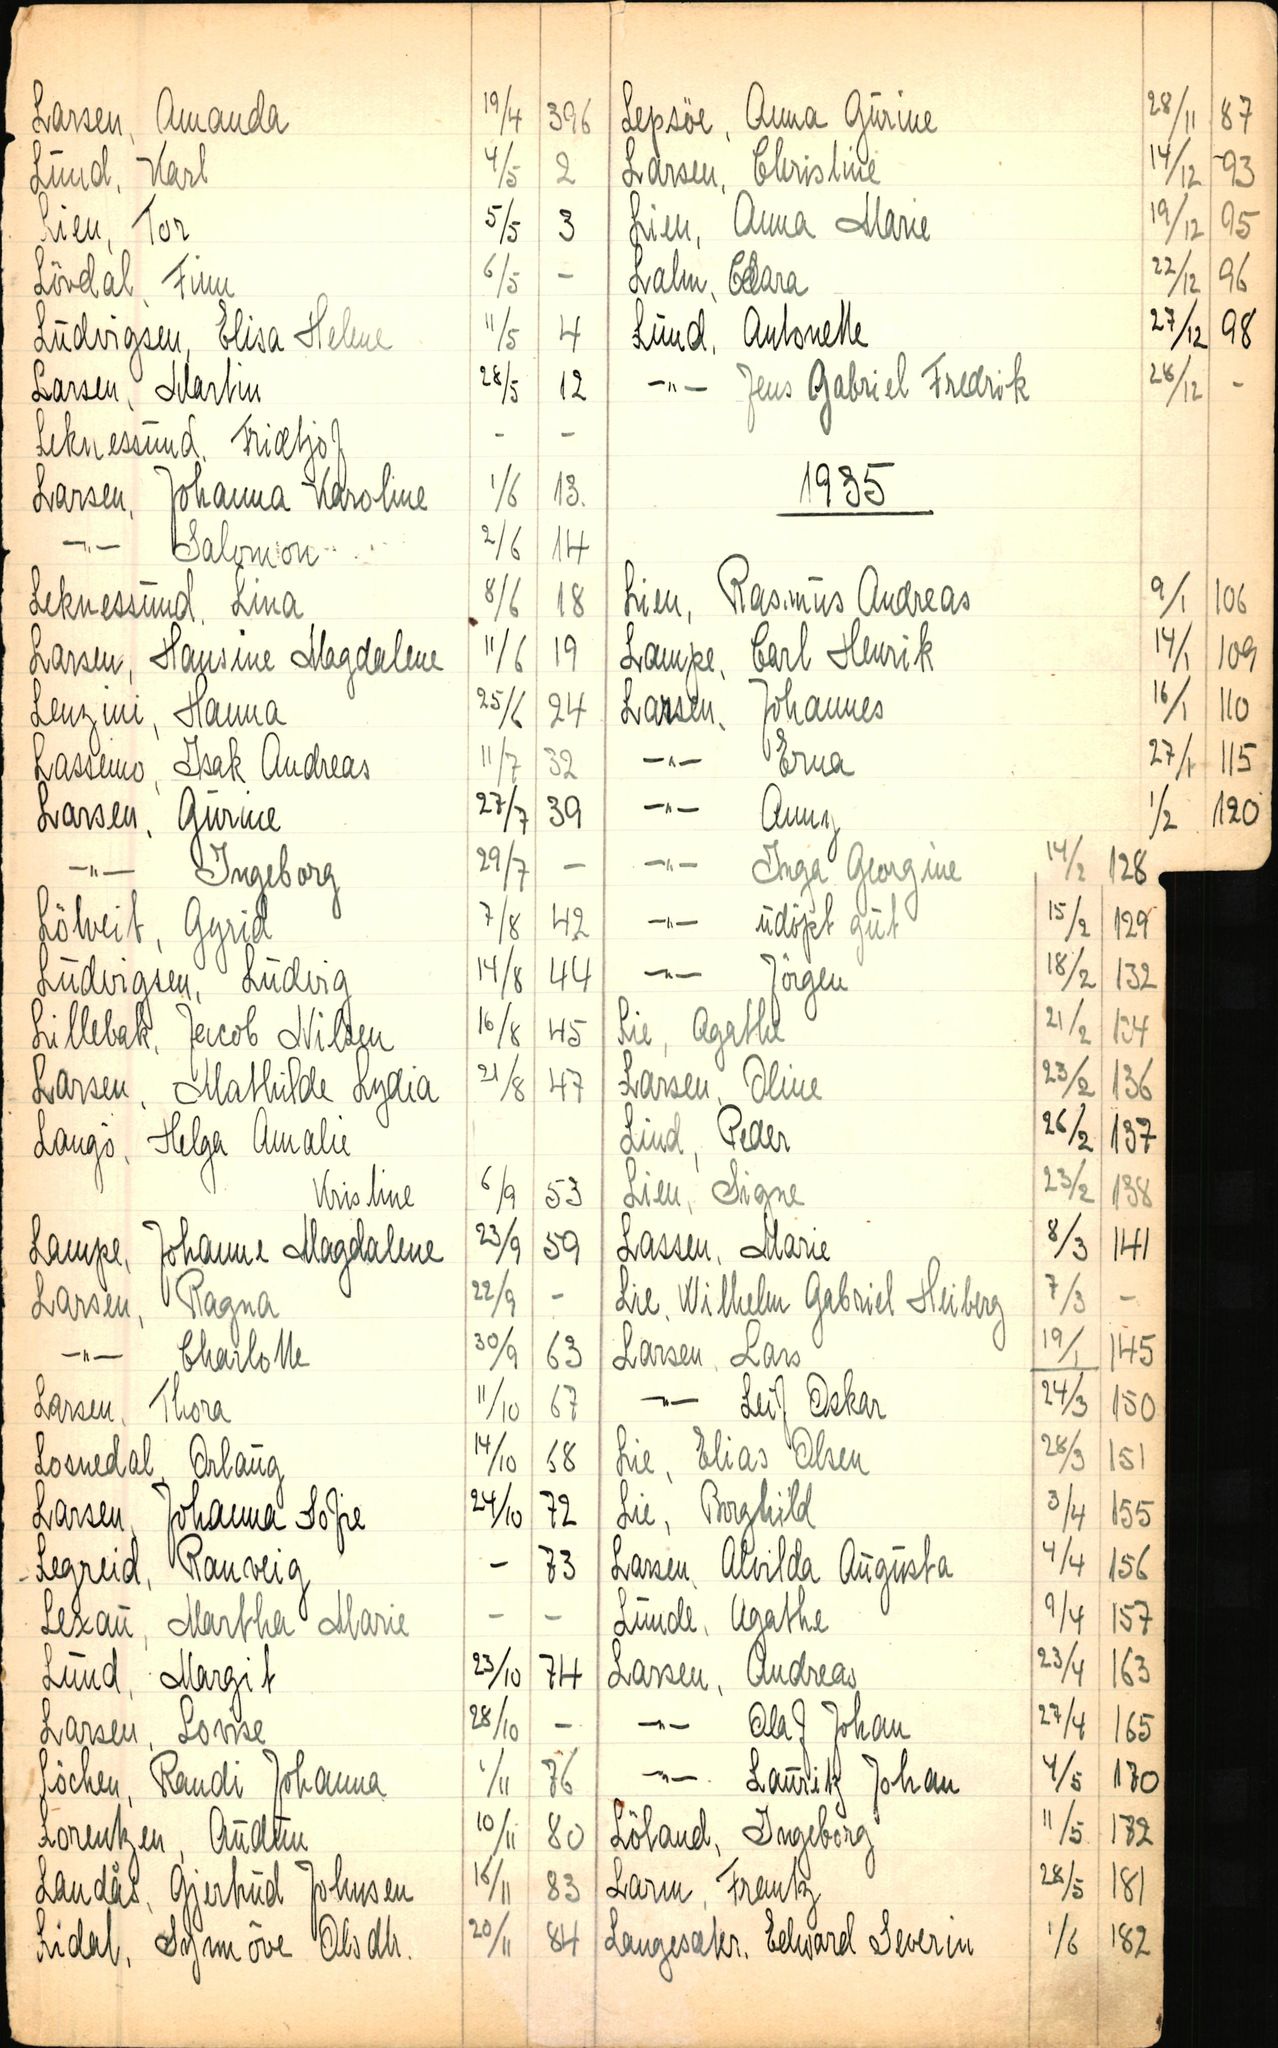 Larsen, Amanda 19/4 396
Lund, Karl 4/5 2
Lien, Tor 5/5 3
Lövdal, Finn 6/5 -
Ludvigsen, Elisa Helene 11/5 4
Larsen, Martin 28/5 12
Leknessund, Fridtjof - -
Larsen, Johanna Karoline 1/6 13.
-"- Salomon 2/6 14
Leknessund, Lina 8/6 18
Larsen, Hansine Magdalene 11/6 19
Lenzini, Hanna 25/6 24
Lassemo, Isak Andreas 11/7 32
Larsen, Gurine 27/7 39
-"- Ingeborg 29/7 -
Lölveit, Gyrid 7/8 42
Ludvigsen, Ludvig 14/8 44
Lillebak, Jacob Nilsen 16/8 45
Larsen, Mathilde Lydia 21/8 47
Langö, Helga Amalie
Kristine 6/9 53
Lampe, Johanne Magdalene 23/9 59
Larsen, Ragna 22/9 -
-"- Charlotte 30/9 63
Larsen, Thora 11/10 67
Losnedal, Orlaug 14/10 68
Larsen, Johanna Sofie 24/10 72
Legreid, Ranveig - 73
Lexau, Martha Marie - -
Lund, Margit 23/10 74
Larsen, Lovise 28/10 -
Löchen, Randi Johanna 1/11 76
Lorentzen, Audun 10/11 80
Landås, Gjertrud Johnsen 16/11 83
Lidal, Synnöve Olsdtr. 20/11 84
Lepsöe, Anna Gurine 28/11 87
Larsen, Christine 14/12 93
Lien, Anna Marie 19/12 95
Lalm, Clara 22/12 96
Lund, Antonette 27/12 98
-"- Jens Gabriel Fredrik 28/12 -
1935
Lien, Rasmus Andreas 9/1 106
Lampe, Carl Henrik 14/1 109
Larsen, Johannes 16/1 110
-"- Erna 27/1 115
-"- Anny 1/2 120
-"- Inga Georgine 14/2 128
-"- udöpt gut 15/2 129
-"- Jörgen 18/2 132
Lie, Agathe 21/2 134
Larsen, Oline 23/2 136
Lind, Peder 26/2 137
Lien, Signe 23/2 138
Lassen, Marie 8/3 141
Lie, Wilhelm Gabriel Heiberg 7/3 -
Larsen, Lars 19/1 145
-"- Leif Oskar 24/3 150
Lie, Elias Olsen 28/3 151
Lie, Borghild 3/4 155
Larsen, Alvilda Augusta 4/4 156
Lunde, Agathe 9/4 157
Larsen, Andreas 23/4 163
-"- Olaf Johan 27/4 165
-"- Lauritz Johan 4/5 170
Löland, Ingeborg 11/5 172
Larm, Frantz 28/5 181
Langesæter, Edward Severin 1/6 182